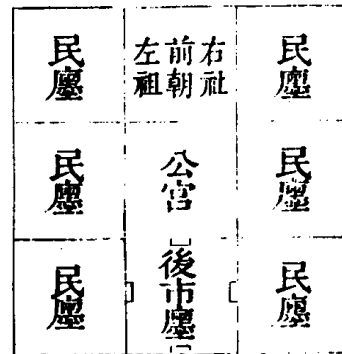 民廛
右社
前朝
左祖
民廛
民廛
公宮
民廛
民廛
後市廛
民廛